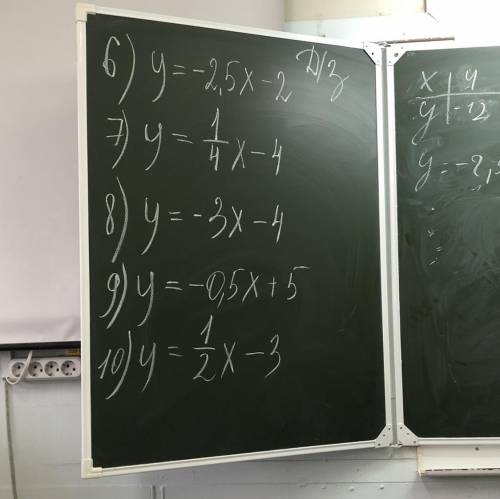 6) y = -2,5x - 2 Д/з
7) y = 1/4 x - 4
8) y = -3x - 4
9) y = -0,5x + 5
10) y = 1/2 x - 3
x | 4
y | -12
y = -2,